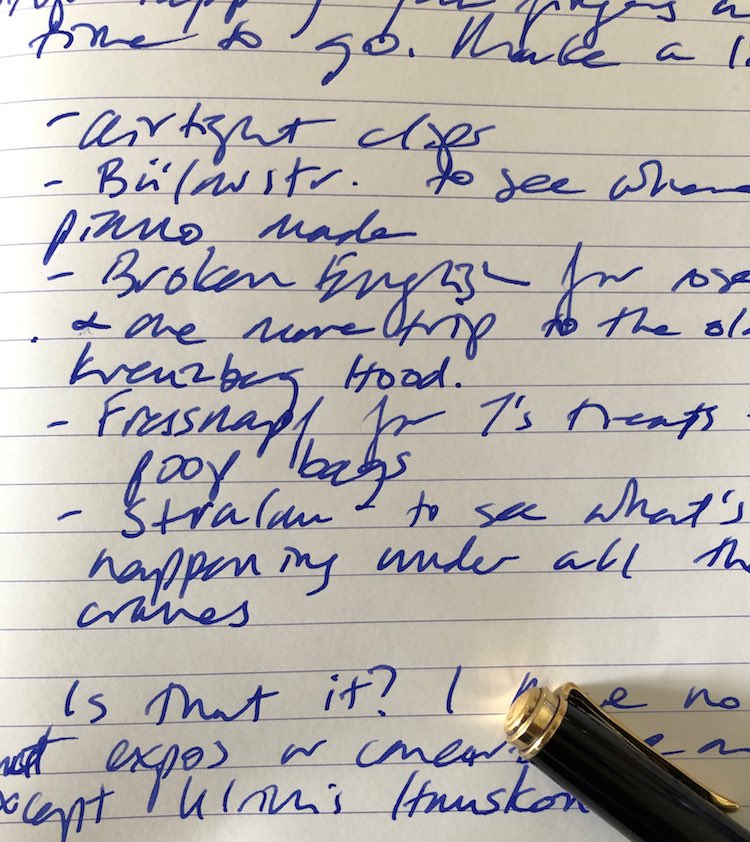 time to go. Make a
- airtight clips
- Bülowstr. to see where
piano made
- Broken English for rose
& one more trip to the old
Kreuzberg Hood.
- Fressnapf for T's treats
poop bags
- Stralau - to see what's
happening under all the
cranes
Is that it? I no
not expos or concerts
except